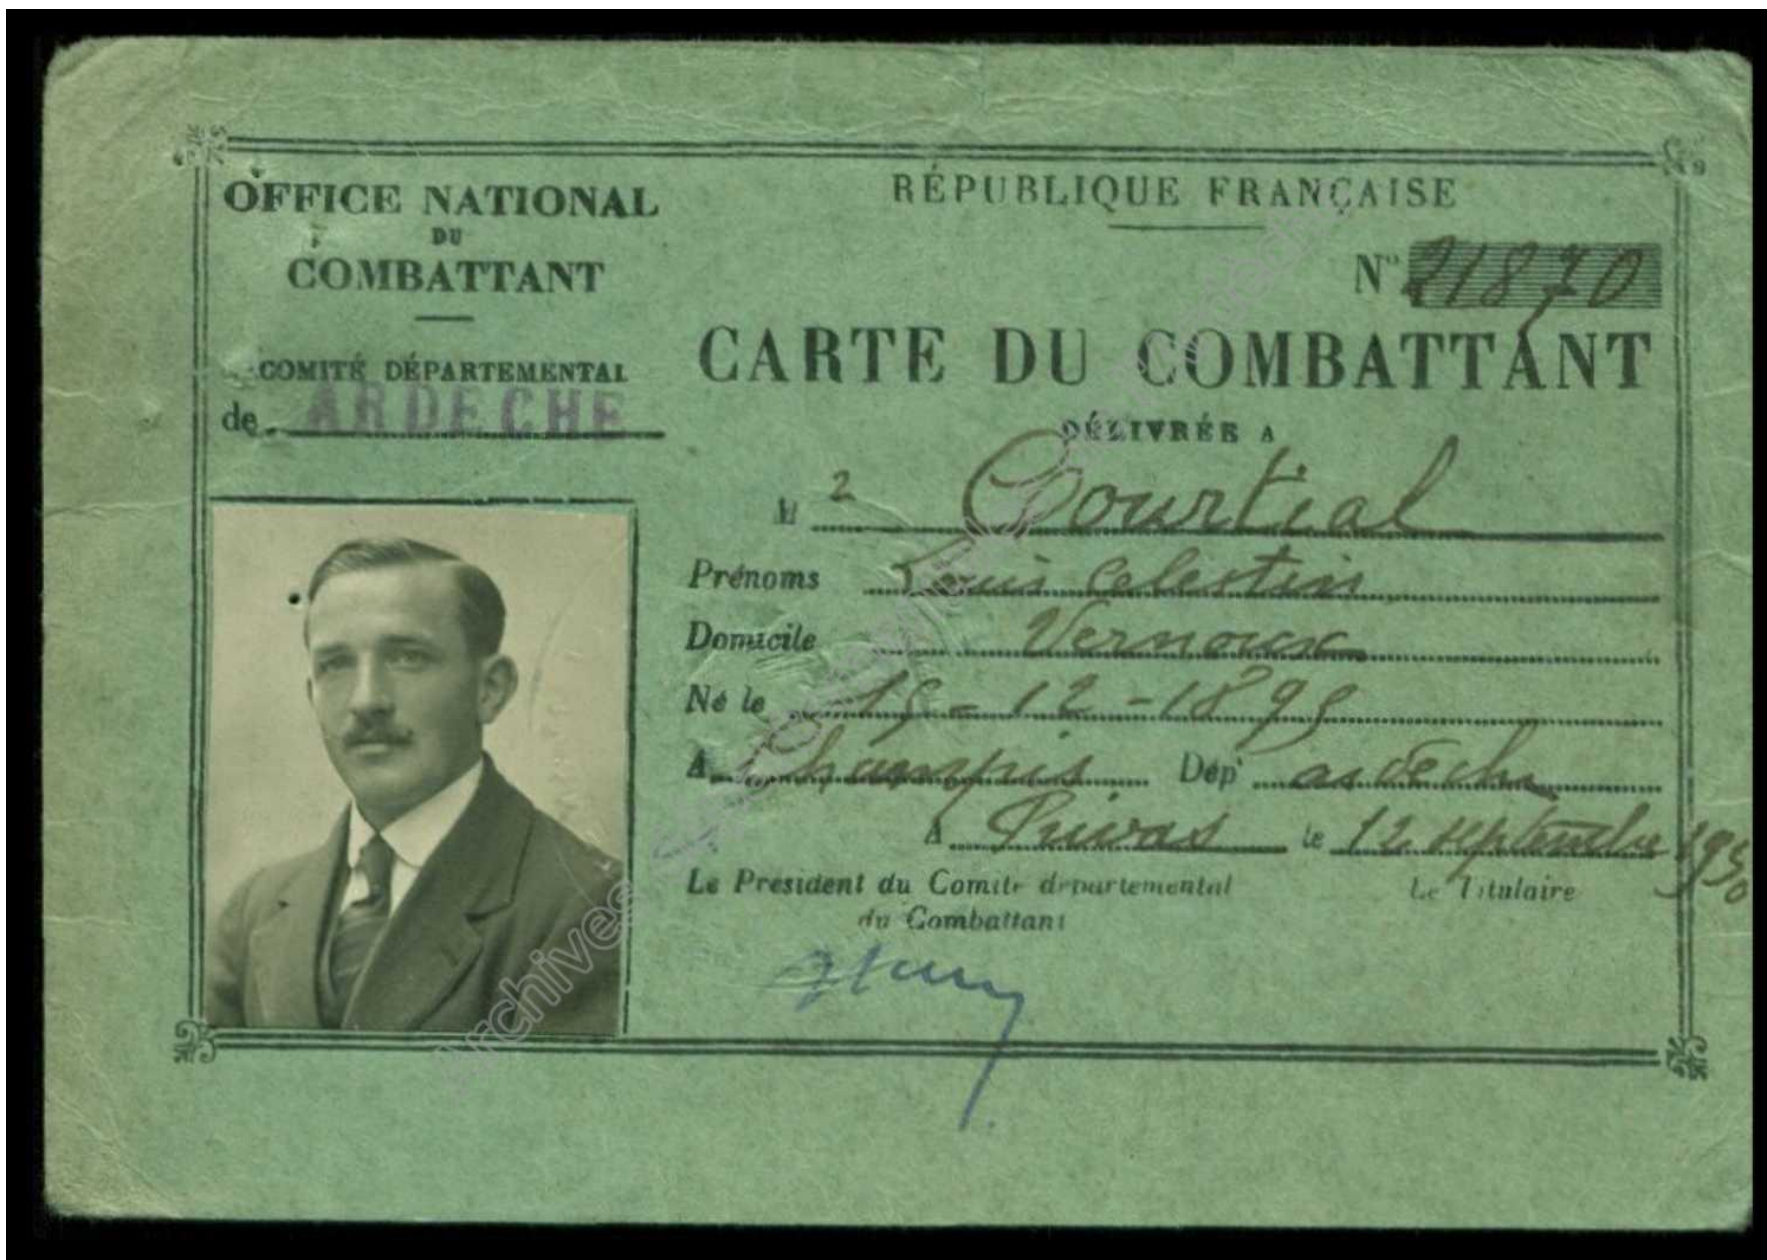 OFFICE NATIONAL
DU
COMBATTANT
COMITÉ DÉPARTEMENTAL
de ARDECHE
RÉPUBLIQUE FRANÇAISE
N° 21870
CARTE DU COMBATTANT
DÉLIVRÉE A
M 2 Courtial
Prénoms Louis Celestin
Domicile Vernoux
Né le 15-12-1895
A Champis Dépt ardèche
A Privas le 12 septembre 1930
Le Président du Comité départemental
du Combattant
Le Titulaire
Archives